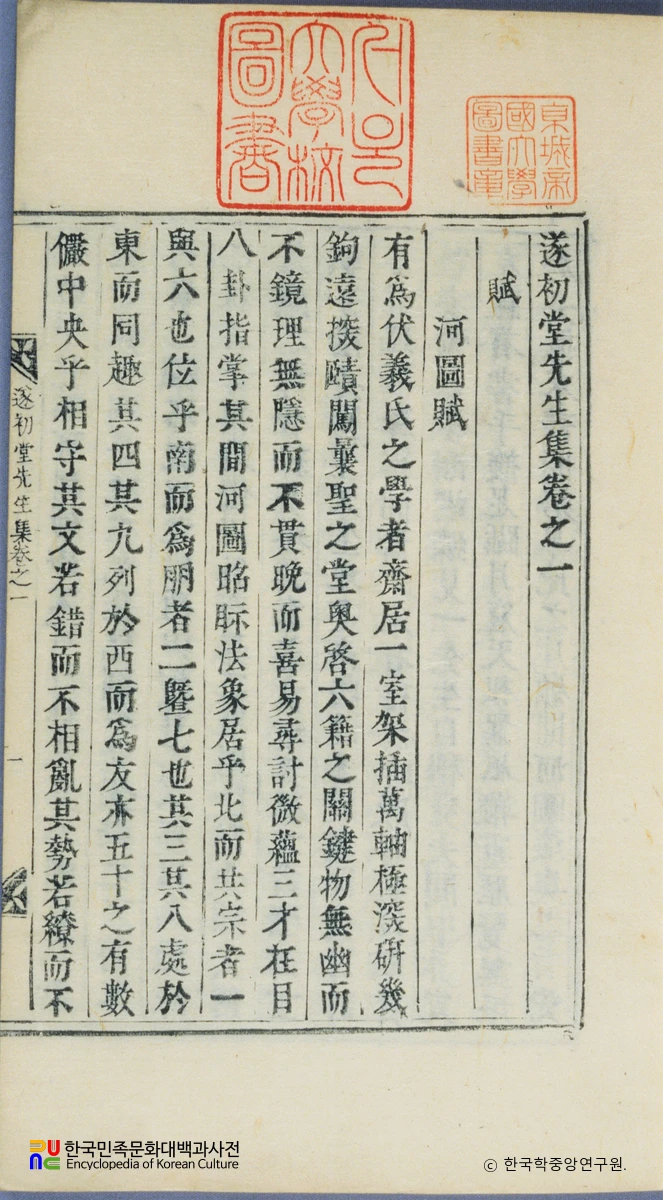 서울大學校圖書
京城帝國大學圖書章
遂初堂先生集卷之一
賦
河圖賦
有爲伏羲氏之學者齋居一室架揷萬軸極深硏幾
鉤遠探賾闖曩聖之堂奧啓六籍之關鍵物無幽而
不鏡理無隱而不貫晩而喜易尋討微蘊三才在目
八卦指掌其間河圖昭眎法象居乎北而共宗者一
與六也位乎南而爲朋者二曁七也其三其八處於
東而同趣其四其九列於西而爲友亦五十之有數
儼中央乎相守其文若錯而不相亂其勢若繚而不
遂初堂先生集卷之一
一
한국민족문화대백과사전
Encyclopedia of Korean Culture
ⓒ 한국학중앙연구원.